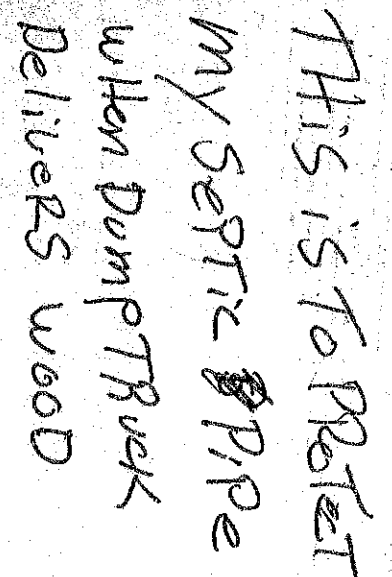 THiS iS To PRoTecT
MY SePTic PiPe
wHen DumP TRucK
DeliveRS wooD